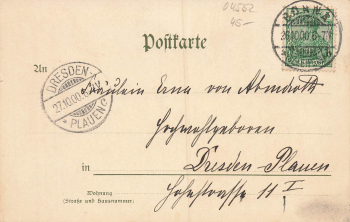 04562
45-
BONN 2
26.10.00 6-7N
Postkarte
An
DRESDEN-A
27.10.00
PLAUEN
Fräulein Erna von Abendroth
Hochwohlgeboren
in Dresden-Plauen
Wohnung
(Straße und Hausnummer)
Hohestrasse 11 I